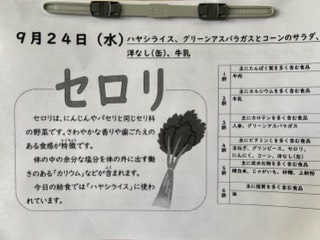 9月24日（水）
ハヤシライス、グリーンアスパラガスとコーンのサラダ、
洋なし(缶)、牛乳
セロリ
セロリは、にんじんやパセリと同じセリ科
の野菜です。さわやかな香りや歯ごたえの
ある食感が特徴です。
体の中の余分な塩分を体の外に出す働
きのある「カリウム」などが含まれます。
今日の給食では「ハヤシライス」に使わ
れています。
主にたんぱく質を多く含む食品
牛肉
主にカルシウムを多く含む食品
牛乳
主にカロテンを多く含む食品
人参、グリーンアスパラガス
主にビタミンCを多く含む食品
玉ねぎ、グリンピース、セロリ、
にんにく、コーン、洋なし(缶)
主に炭水化物を多く含む食品
精白米、じゃがいも、砂糖、上新粉
主に脂質を多く含む食品
油